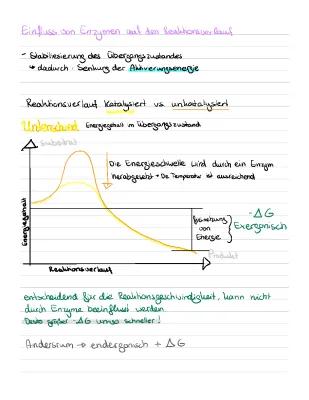 Einfluss von Enzymen auf den Reaktionsverlauf
- Stabilisierung des Übergangszustandes
↳ dadurch: Senkung der Aktivierungsenergie
Reaktionsverlauf katalysiert vs. unkatalysiert
Unterschied Energiegehalt im Übergangszustand
Substrat
Die Energieschwelle wird durch ein Enzym
herabgesetzt → Die Temperatur ist ausreichend
Energiegehalt
Freisetzung
von
Energie
-ΔG
Exergonisch
Produkt
Reaktionsverlauf
entscheidend für die Reaktionsgeschwindigkeit, kann nicht
durch Enzyme beeinflusst werden
Desto größer -ΔG umso schneller!
Andersrum → endergonisch + ΔG